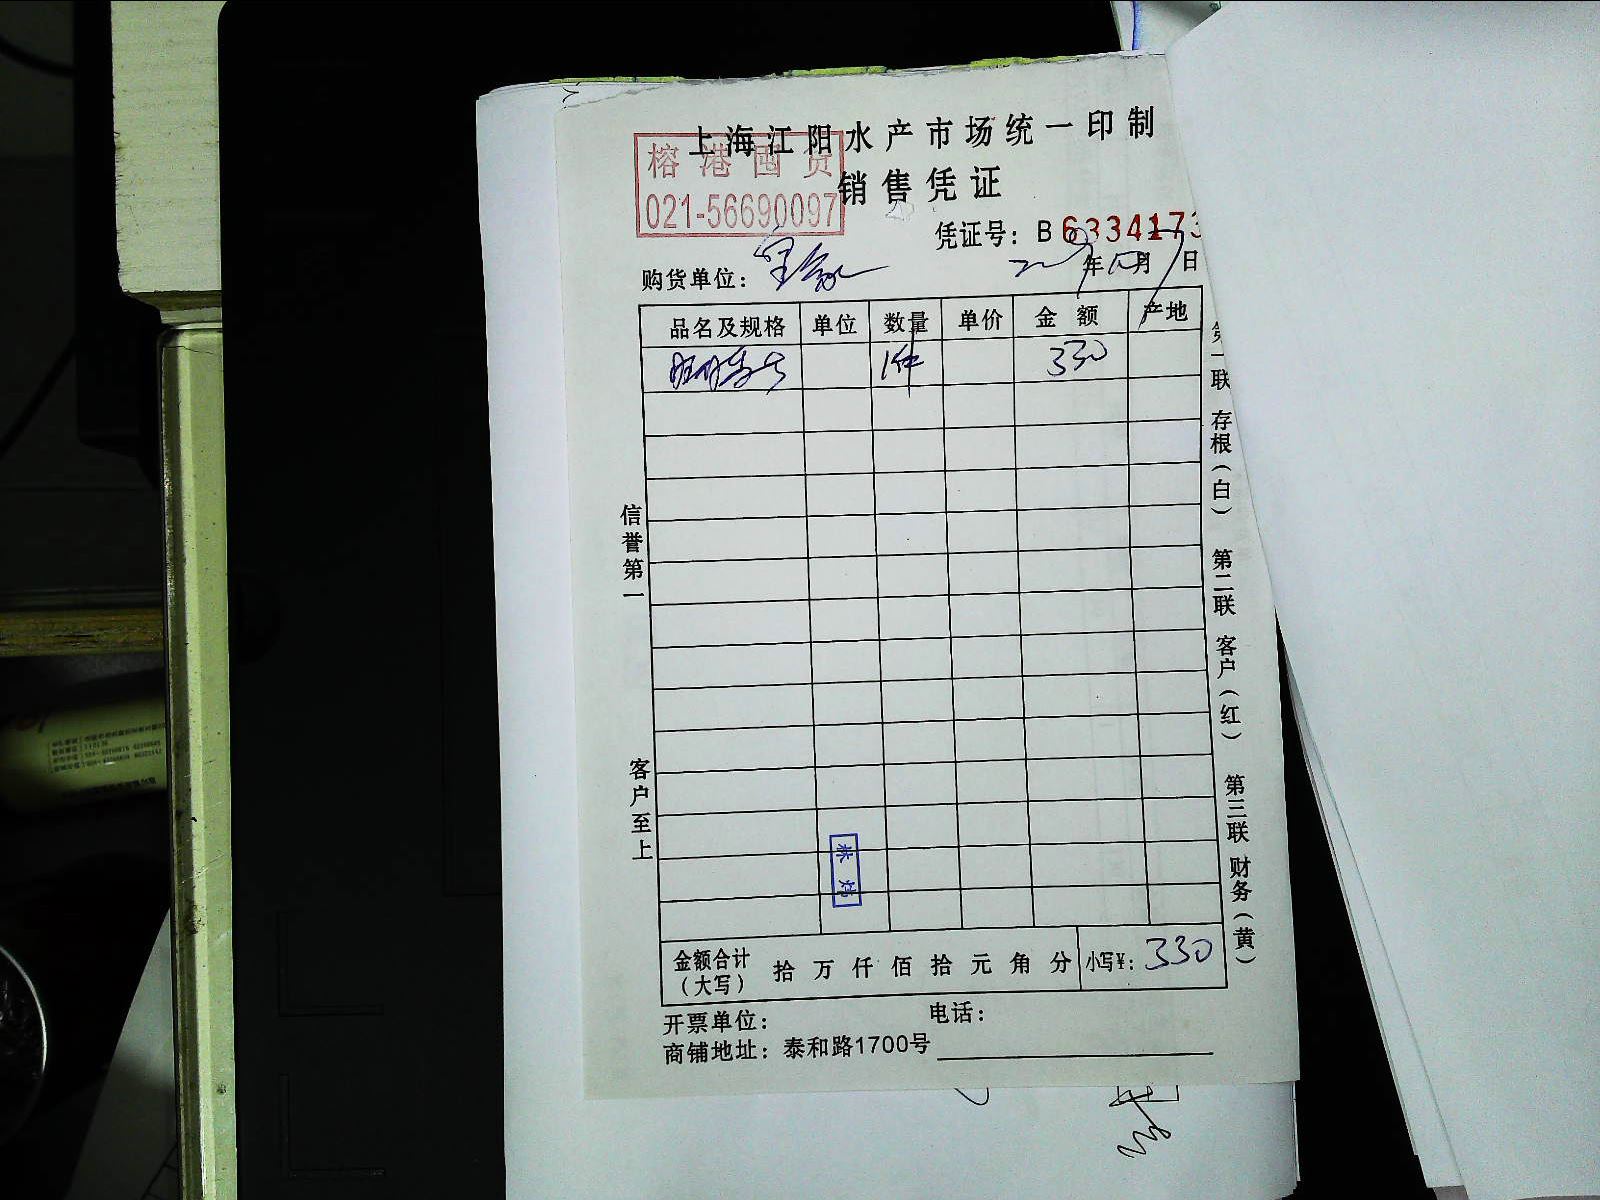 上海江阳水产市场统一印制
榕港囤货
021-56690097
销售凭证
凭证号：B6334173
购货单位：
年 月 日
品名及规格 单位 数量 单价 金额 产地
1件 330
信誉第一
客户至上
第一联 存根（白） 第二联 客户（红） 第三联 财务（黄）
金额合计（大写） 拾 万 仟 佰 拾 元 角 分 小写¥：330
开票单位： 电话：
商铺地址：泰和路1700号